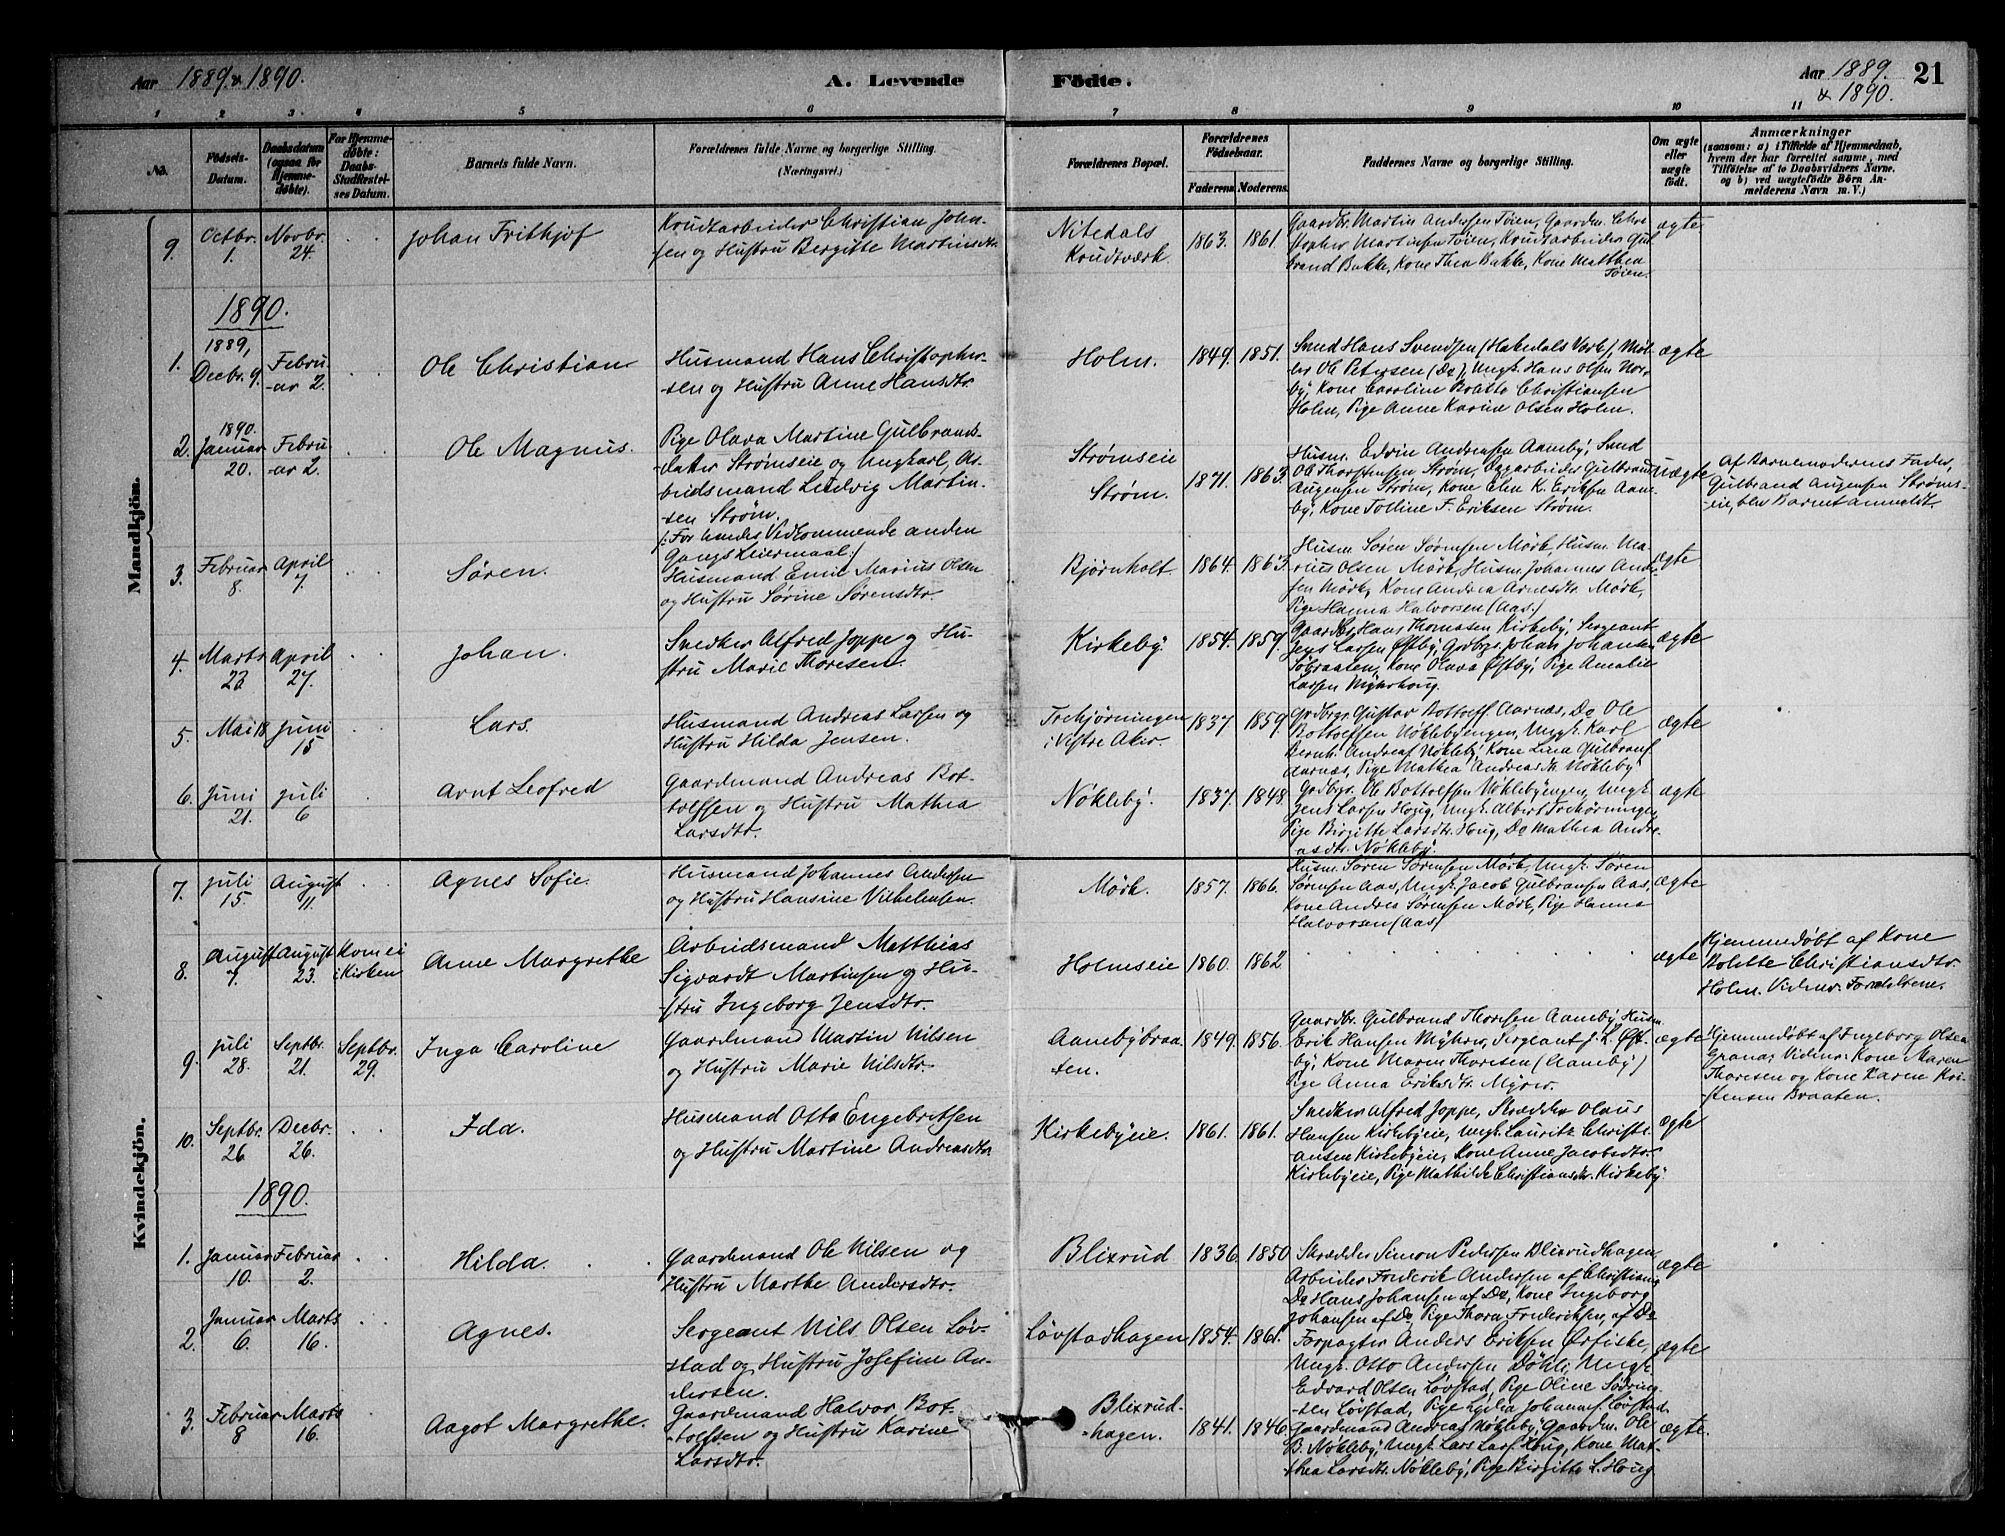 Aar 1889 & 1890.
A. Levende Fødte.
Aar 1889. & 1890.
21
1 2 3 4 5 6 7 8 9 10 11
No.
Fødsels-Datum.
Daabsdatum (ogsaa for Hjemme-døbte).
For Hjemme-døbte: Daabs-Stadfæstel-ses Datum.
Barnets fulde Navn.
Forældrenes fulde Navne og borgerlige Stilling.
(Næringsvei.)
Forældrenes Bopæl.
Forældrenes Fødselsaar.
Faderens. Moderens.
Faddernes Navne og borgerlige Stilling.
Om ægte eller uægte født.
Anmærkninger
(saasom: a) i Tilfælde af Hjemmedaab,
hvem der har forrettet samme, med
Tilføielse af to Daabsvidners Navne,
og b) ved uægtefødte Børn An-
melderens Navn m. V.)
Mandkjön.
9. Octbr. 1. Novbr. 24. Johan Frithjof
Krudtarbeider Christian John-
sen og Hustru Bergitte Martinsdtr.
Nitedals Krudtværk. 1863. 1861.
Gaardbr. Martin Andersen Tøien, Gaardm. Chri-
stopher Martinsen Tøien, Krudtarbeider Gul
brand Bakke, Kone Thea Bakke, Kone Mathea
Tøien.
ægte
1890.
1. 1889, Decbr. 9. Febru-ar 2. Ole Christian
Husmand Hans Christopher-
sen og Hustru Anne Hansdtr.
Holm. 1849. 1851.
Smed Hans Svendsen (Hakedals Verk), Møl-
ler Ole Petersen (Do), Ungk. Hans Olsen Nor-
by, Kone Caroline Bolette Christiansen
Holm, Pige Anne Karine Olsen Holm.
ægte
2. 1890. Januar 20. Febru-ar 2. Ole Magnus.
Pige Olava Martine Gulbrands-
datter Strømseie og Ungkarl, Ar-
beidsmand Ludvig Martin-
sen Strøm.
/: For hendes Vedkommende anden
Gangs Leiermaal :/
Strømseie
Strøm. 1871. 1863.
Husm. Edvin Andreasen Aamby, Smed
Ole Thorstensen Strøm, Gulbrand
Augensen Strøm, Kone Elen K. Eriksen Aam-
by, Kone Tolline F. Eriksen Strøm.
uægte
Af Barnemoderens Fader,
Gulbrand Augensen Strøms-
eie, blev Barnet anmeldt.
3. Februar 8. April 7. Søren.
Husmand Emil Marius Olsen
og Hustru Sørine Sørensdtr.
Bjørnholt. 1864. 1863.
Husm. Søren Sørensen Mørk, Husm. Ma-
rius Olsen Mørk, Husm. Johannes And-
sen Mørk, Kone Andrea Arnesdtr. Mørk,
Pige Hanna Halvorsen (Aas.)
ægte
4. Marts 23. April 27. Johan.
Snedker Alfred Joppe og Hu-
stru Marie Thoresen.
Kirkeby. 1854. 1859.
Gaardbr. Hans Thomasen Kirkeby, Sergeant
Jens Larsen Østby, Grdbrgr. Johan Johansen
Søbraaten, Kone Olava Østby, Pige Amalie
Larsen
ægte
5. Mai 18 Juni 15. Lars.
Husmand Andreas Larsen og
Hustru Hilda Jensen.
Trehjørningen
i Vestre Aker. 1837. 1859.
Grdbrgr. Gustav Bottolfs. Aarnæs, Do Ole
Bottolfsen Nøklebyengen, Ungk. Karl
Bernh. Andreas. Nøkleby, Kone Lina Gulbrans.
Aarnæs, Pige Mathea Andreasdtr. Nøkleby
ægte
6. Juni 21. Juli 6. Arnt Leofred
Gaardmand Andreas Bot-
tolfsen og Hustru Mathea
Larsdtr.
Nøkleby. 1837. 1848.
Grdbgr. Ole Bottolfsen Nøklebyengen, Ungk.
Jens Larsen Houg, Ungk. Albert Trehørningen,
Pige Birgitte Larsdtr. Houg, Do Mathea Andre-
asdtr. Nøkleby.
ægte
Kvindekjön.
7. Juli 15. August 11. Agnes Sofie.
Husmand Johannes Andersen
og Hustru Hansine Vilhelmsen.
Mørk. 1857. 1866.
Husm. Søren Sørensen Mørk, Ungk. Søren
Sørensen Aas, Ungk. Jacob Gulbransen Aas,
Kone Andrea Sørensen Mørk, Pige Hanna
Halvorsen (Aas)
ægte
8. August 7. August 23. Kom ei i Kirken Anne Margrethe
Arbeidsmand Matthias
Sigvardt Martinsen og Hu-
stru Ingeborg Jensdtr.
Holmseie 1860. 1862.
ægte
Hjemmedøbt af Kone
Bolette Christiansdtr.
Holm. Vidner: Forældrene.
9. Juli 28. Septbr. 21. Septbr. 29. Inga Caroline
Gaardmand Martin Nilsen
og Hustru Marie Nilsdtr.
Aamebybraa-
ten. 1849. 1856.
Gaardbr. Gulbrand Thoresen Aaneby, Husm.
Erik Hansen Myhrer, Sergeant J. L. Øst-
by, Kone Maren Thoresen (Aaneby)
Pige Anna Eriksdtr. Myrer.
ægte
Hjemmedøbt af Ingeborg Olsen
Granar. Vidner: Kone Maren
Thoresen og Kone Karen Kri-
stensen Braaten.
10. Septbr. 26. Decbr. 26. Ida.
Husmand Otto Engebretsen
og Hustru Martine Andreasdtr.
Kirkebyeie. 1861. 1861.
Snedker Alfred Joppe, Skrædder Olaus
Hansen Kirkebyeie, Ungk. Lauritz Christi-
ansen Kirkebyeie, Kone Anne Jacobsdtr.
Kirkebyeie, Pige Mathilde Christiansdtr. Kirkeby.
ægte
1890.
1. Januar 10. Februar 2. Hilda.
Gaardmand Ole Nilsen og
Hustru Marthe Andersdtr.
Blixrud 1836. 1850.
Skrædder Simon Pedersen Blixrudhagen,
Arbeider Frederik Andersen af Christiania,
Do Hans Johansen af Do, Kone Ingeborg
Johansen af Do, Pige Thora Frederiksen, af Do
ægte
2. Januar 6. Marts 16. Agnes.
Sergeant Nils Olsen Løv-
stad og Hustru Josefine An-
dersen.
Løvstadhagen 1854. 1861.
Forpagter Anders Eriksen Ørfiske,
Ungk. Otto Andersen Døhli, Ungk.
Edvard Olsen Løvstad, Pige Oline Sødring-
sen Løvstad, Pige Lydia Johannes. Løvstad
ægte
3. Februar 8 Marts 16. Aagot Margrethe.
Gaardmand Halvor Bot-
tolfsen og Hustru Karine
Larsdtr.
Blixrud-
hagen. 1841. 1846.
Gaardmand Andreas Nøkleby, Gaardm. Ole
B. Nøkleby, Ungk. Lars Lars. Houg, Kone Mat-
thea Larsdtr. Nøkleby, Pige Birgitte L. Houg
ægte.